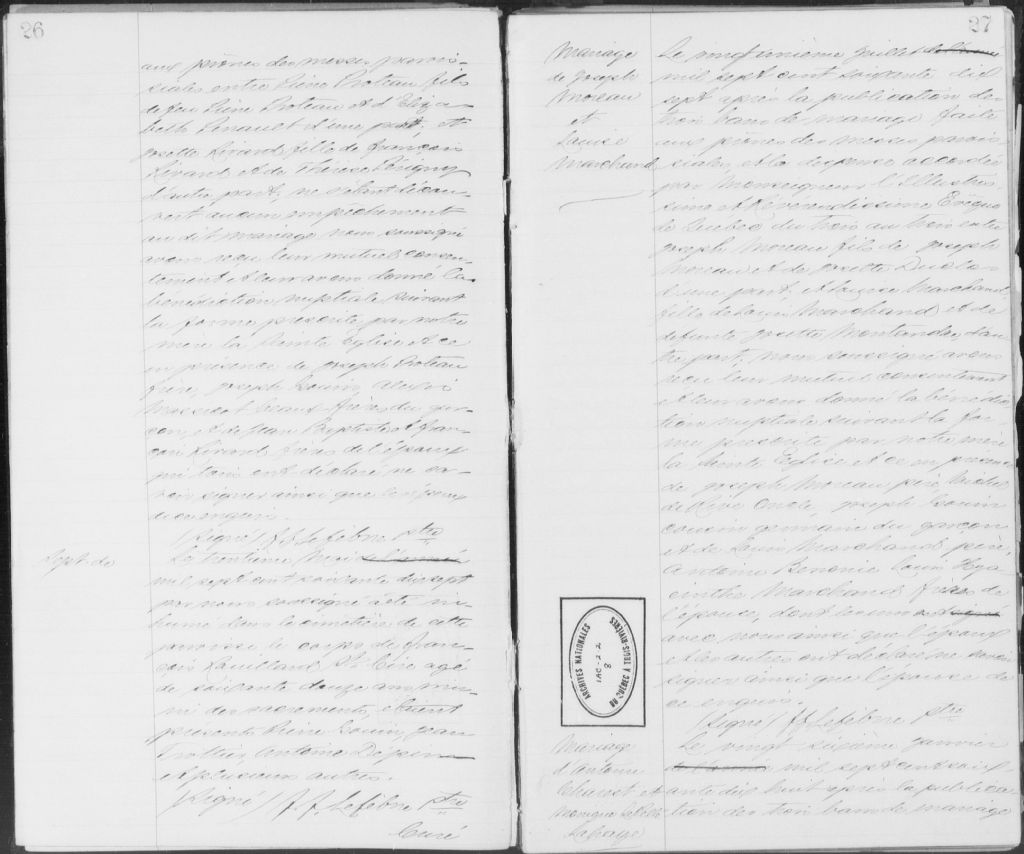 26
aux prônes des messes parois-
siales entre Pierre Proteau fils
de feu Pierre Proteau et d'Eliza-
beth Renault d'une part, et
Josette Rivard fille de François
Rivard et de Thérèse Périgny
d'autre part, ne s'étant décou-
vert aucun empêchement
au dit mariage nous soussigné
avons reçu leur mutuel consen-
tement et leur avons donné la
bénédiction nuptiale suivant
la forme prescrite par notre
mère la Sainte Eglise et ce
en présence de Joseph Proteau
frère, Joseph Gouin, Alexis
beaux frères du gar-
çon, et de Jean Baptiste et Fran-
çois Rivard frères de l'épouse
qui tous ont déclaré ne sa-
voir signer ainsi que les époux
de ce enquis.
(Signé) J. F. Lefebvre ptre
Sept. de
Le trentième Mai de l'année
mil sept cent soixante dix sept
par nous soussigné a été in-
humé dans le cimetière de cette
paroisse le corps de Fran-
çois agé
de soixante douze ans mu-
ni des sacrements, étaient
présents Pierre Gouin, Jean
Trottier, Antoine
et plusieurs autres.
(Signé) J. F. Lefebvre ptre
Curé
27
Mariage
de Joseph
Moreau
et
Louise
Marchand
Le vingtunième Juillet de l'année
mil sept cent soixante dix
sept après la publication de
trois bans de mariage faite
aux prônes des messes parois-
siales, et la dispense accordée
par Monseigneur l'Illustris-
sime et Révérendissime Evêque
de Québec du trois au trois entre
Joseph Moreau fils de Joseph
Moreau et de Josette
d'une part, et Louise Marchand,
fille de Louis Marchand et de
défunte Josette d'au-
tre part, nous soussigné avons
reçu leur mutuel consentement
et leur avons donné la bénédic-
tion nuptiale suivant la for-
me prescrite par notre mère
la Sainte Eglise et ce en présence
de Joseph Moreau père,
oncle, Joseph Gouin
cousin germain du garçon
et de Louis Marchand père,
Antoine Louis Hya-
cinthe Marchand frères de
l'épouse, dont les uns ont signé
avec nous ainsi que l'époux
et les autres ont déclaré ne savoir
signer ainsi que l'épouse de
ce enquis.
(Signé) J. F. Lefebvre ptre
ARCHIVES NATIONALES
8
DU QUÉBEC À TROIS-RIVIÈRES
Mariage
d'Antoine
et
Monique
Lahaye
Le vingt sixième Janvier
de l'année mil sept cent soix-
ante dix huit après la publica-
tion des trois bans de mariage